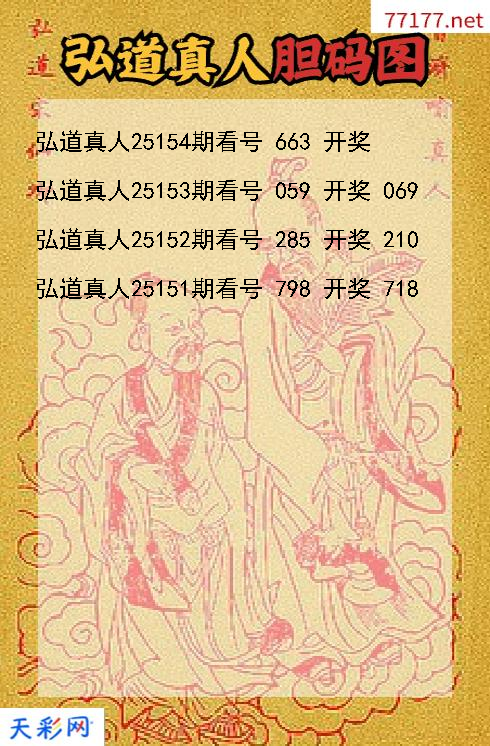 77177.net
弘道真人胆码图
弘道真人25154期看号 663 开奖
弘道真人25153期看号 059 开奖 069
弘道真人25152期看号 285 开奖 210
弘道真人25151期看号 798 开奖 718
天彩网